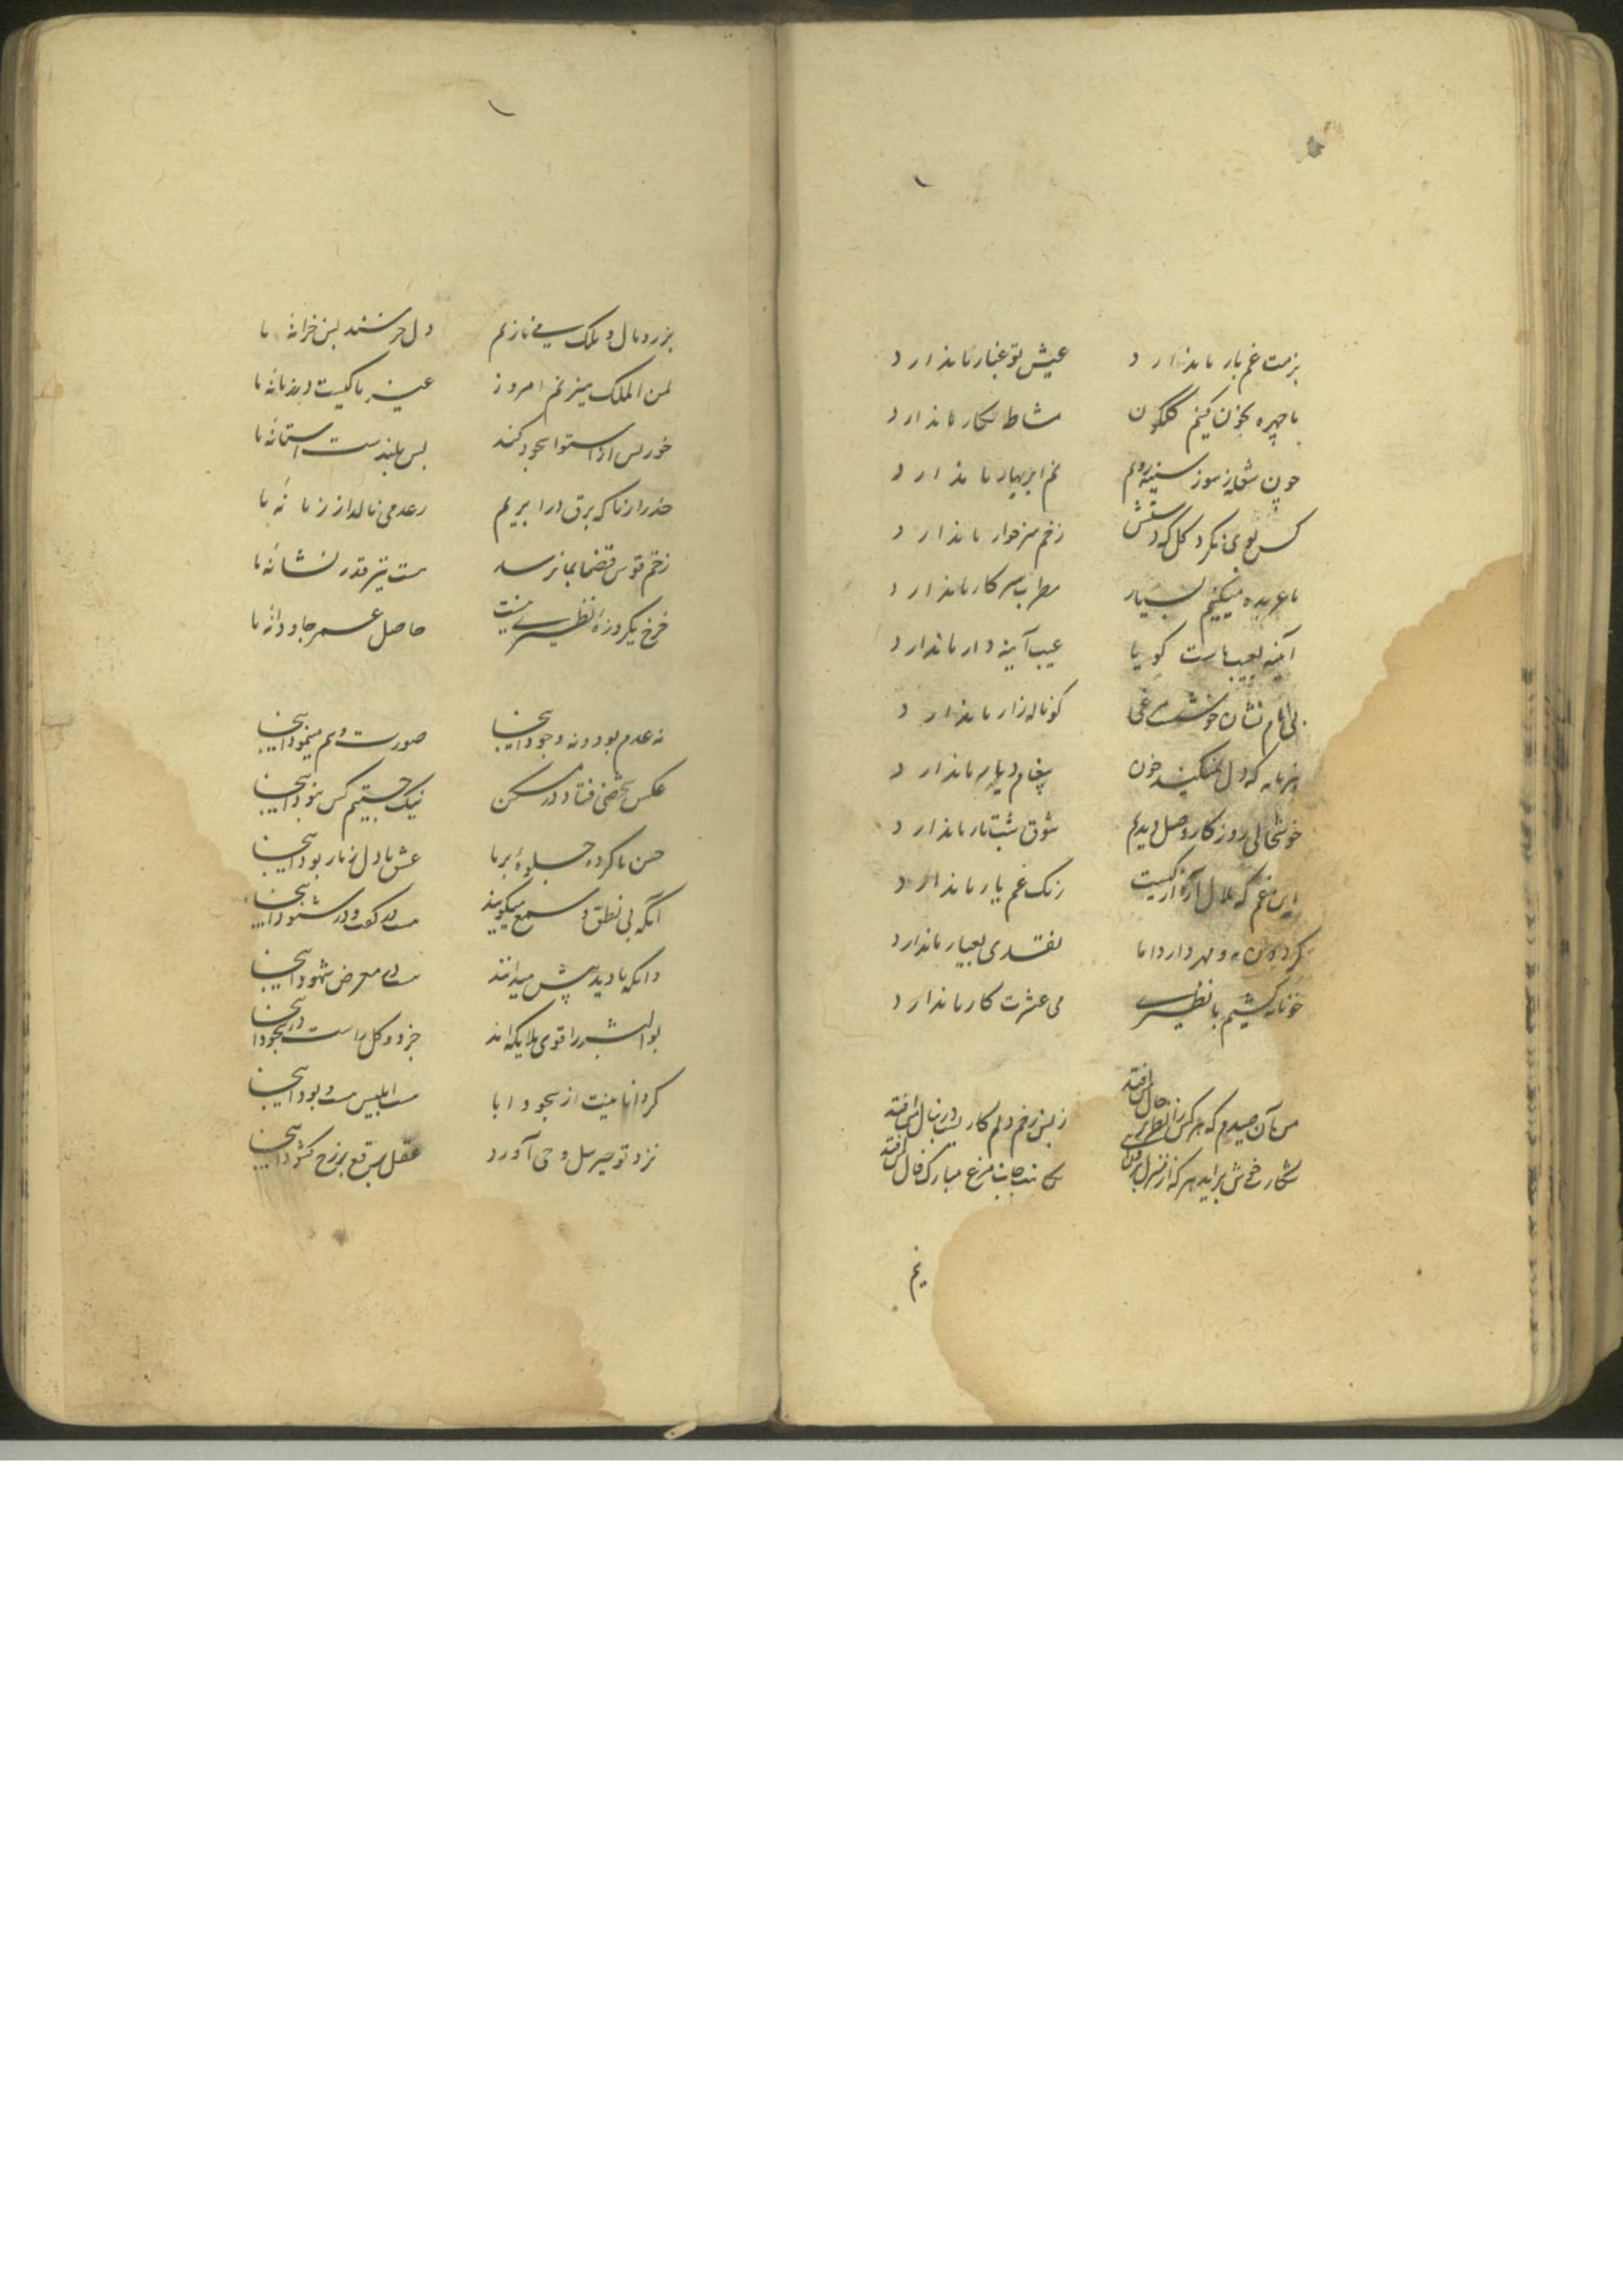 بزمت غم بار ما ندارد عیش تو غبار ما ندارد
ما چهره بخون کنیم گلگون مشاطه نگار ما ندارد
چون شعله ز سوز سینه رویم نم ابر بهار ما ندارد
کس بوی نکرد گل که دستش زخم سر خار ما ندارد
ما عربده میکنیم بسیار مطرب سر کار ما ندارد
آینه بعیب ماست گویا عیب آینه دار ما ندارد
بی نام نشان خوشست مرغی کو ناله زار ما ندارد
که دل خون پیغام دیار ما ندارد
خوشحالی روزگار وصل دیدیم شوق شب تار ما ندارد
این غم که ملال رنگ غم یار ما ندارد
و مهر دارد اما نقدی بعیار ما ندارد
خونابه کشیم با نظیری می عشرت کار ما ندارد
من آن صیدم که هر کس را نظر بر حال من افتد ز بس زخم دلم کاریست در دنبال من افتد
شکارش خوش برآید هر که از منزل برون مبارک فال من افتد
نیم
بزر و مال و ملک می نازیم دل خرسند بس خزانه ما
لمن الملک میزنیم امروز غیر ما کیست در زمانه ما
خور پس از استوا سجود کند بس بلندست آستانه ما
حذر از ما که برق در ابریم رعد می نالد از زبانه ما
زخم قوس قضا بما نرسد هست تیر قدر نشانه ما
فرخ یکروزه نظیری نیست حاصل عمر جاودانه ما
نه عدم بود و نه وجود اینجا صورت وهم مینمود اینجا
عکس شخصی فتاد در مسکن نیک جستیم کس نبود اینجا
حسن ما کرده جلوه بر ما عشق ما دل ز ما ربود اینجا
آنکه بی نطق و سمع میگویند هست در گفت و در شنود اینجا
وانکه نادیدنیش میدانند هست در معرض شهود اینجا
بوالبشر را قوی ملایکه اند جزو و کل راست در سجود اینجا
کرد انانیت از سجود ابا هست ابلیس هست و بود اینجا
نزد تو جبرئیل وحی آورد عقل برقع ز رخ گشود اینجا